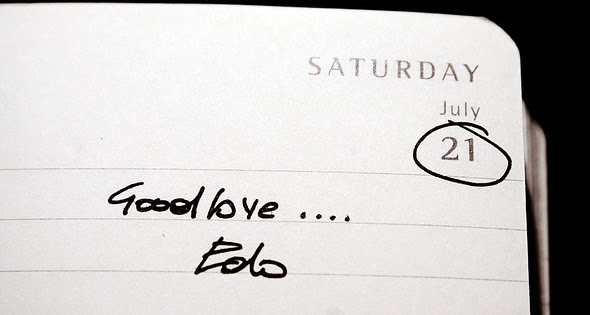 SATURDAY
July
21
Goodbye ....
Edo